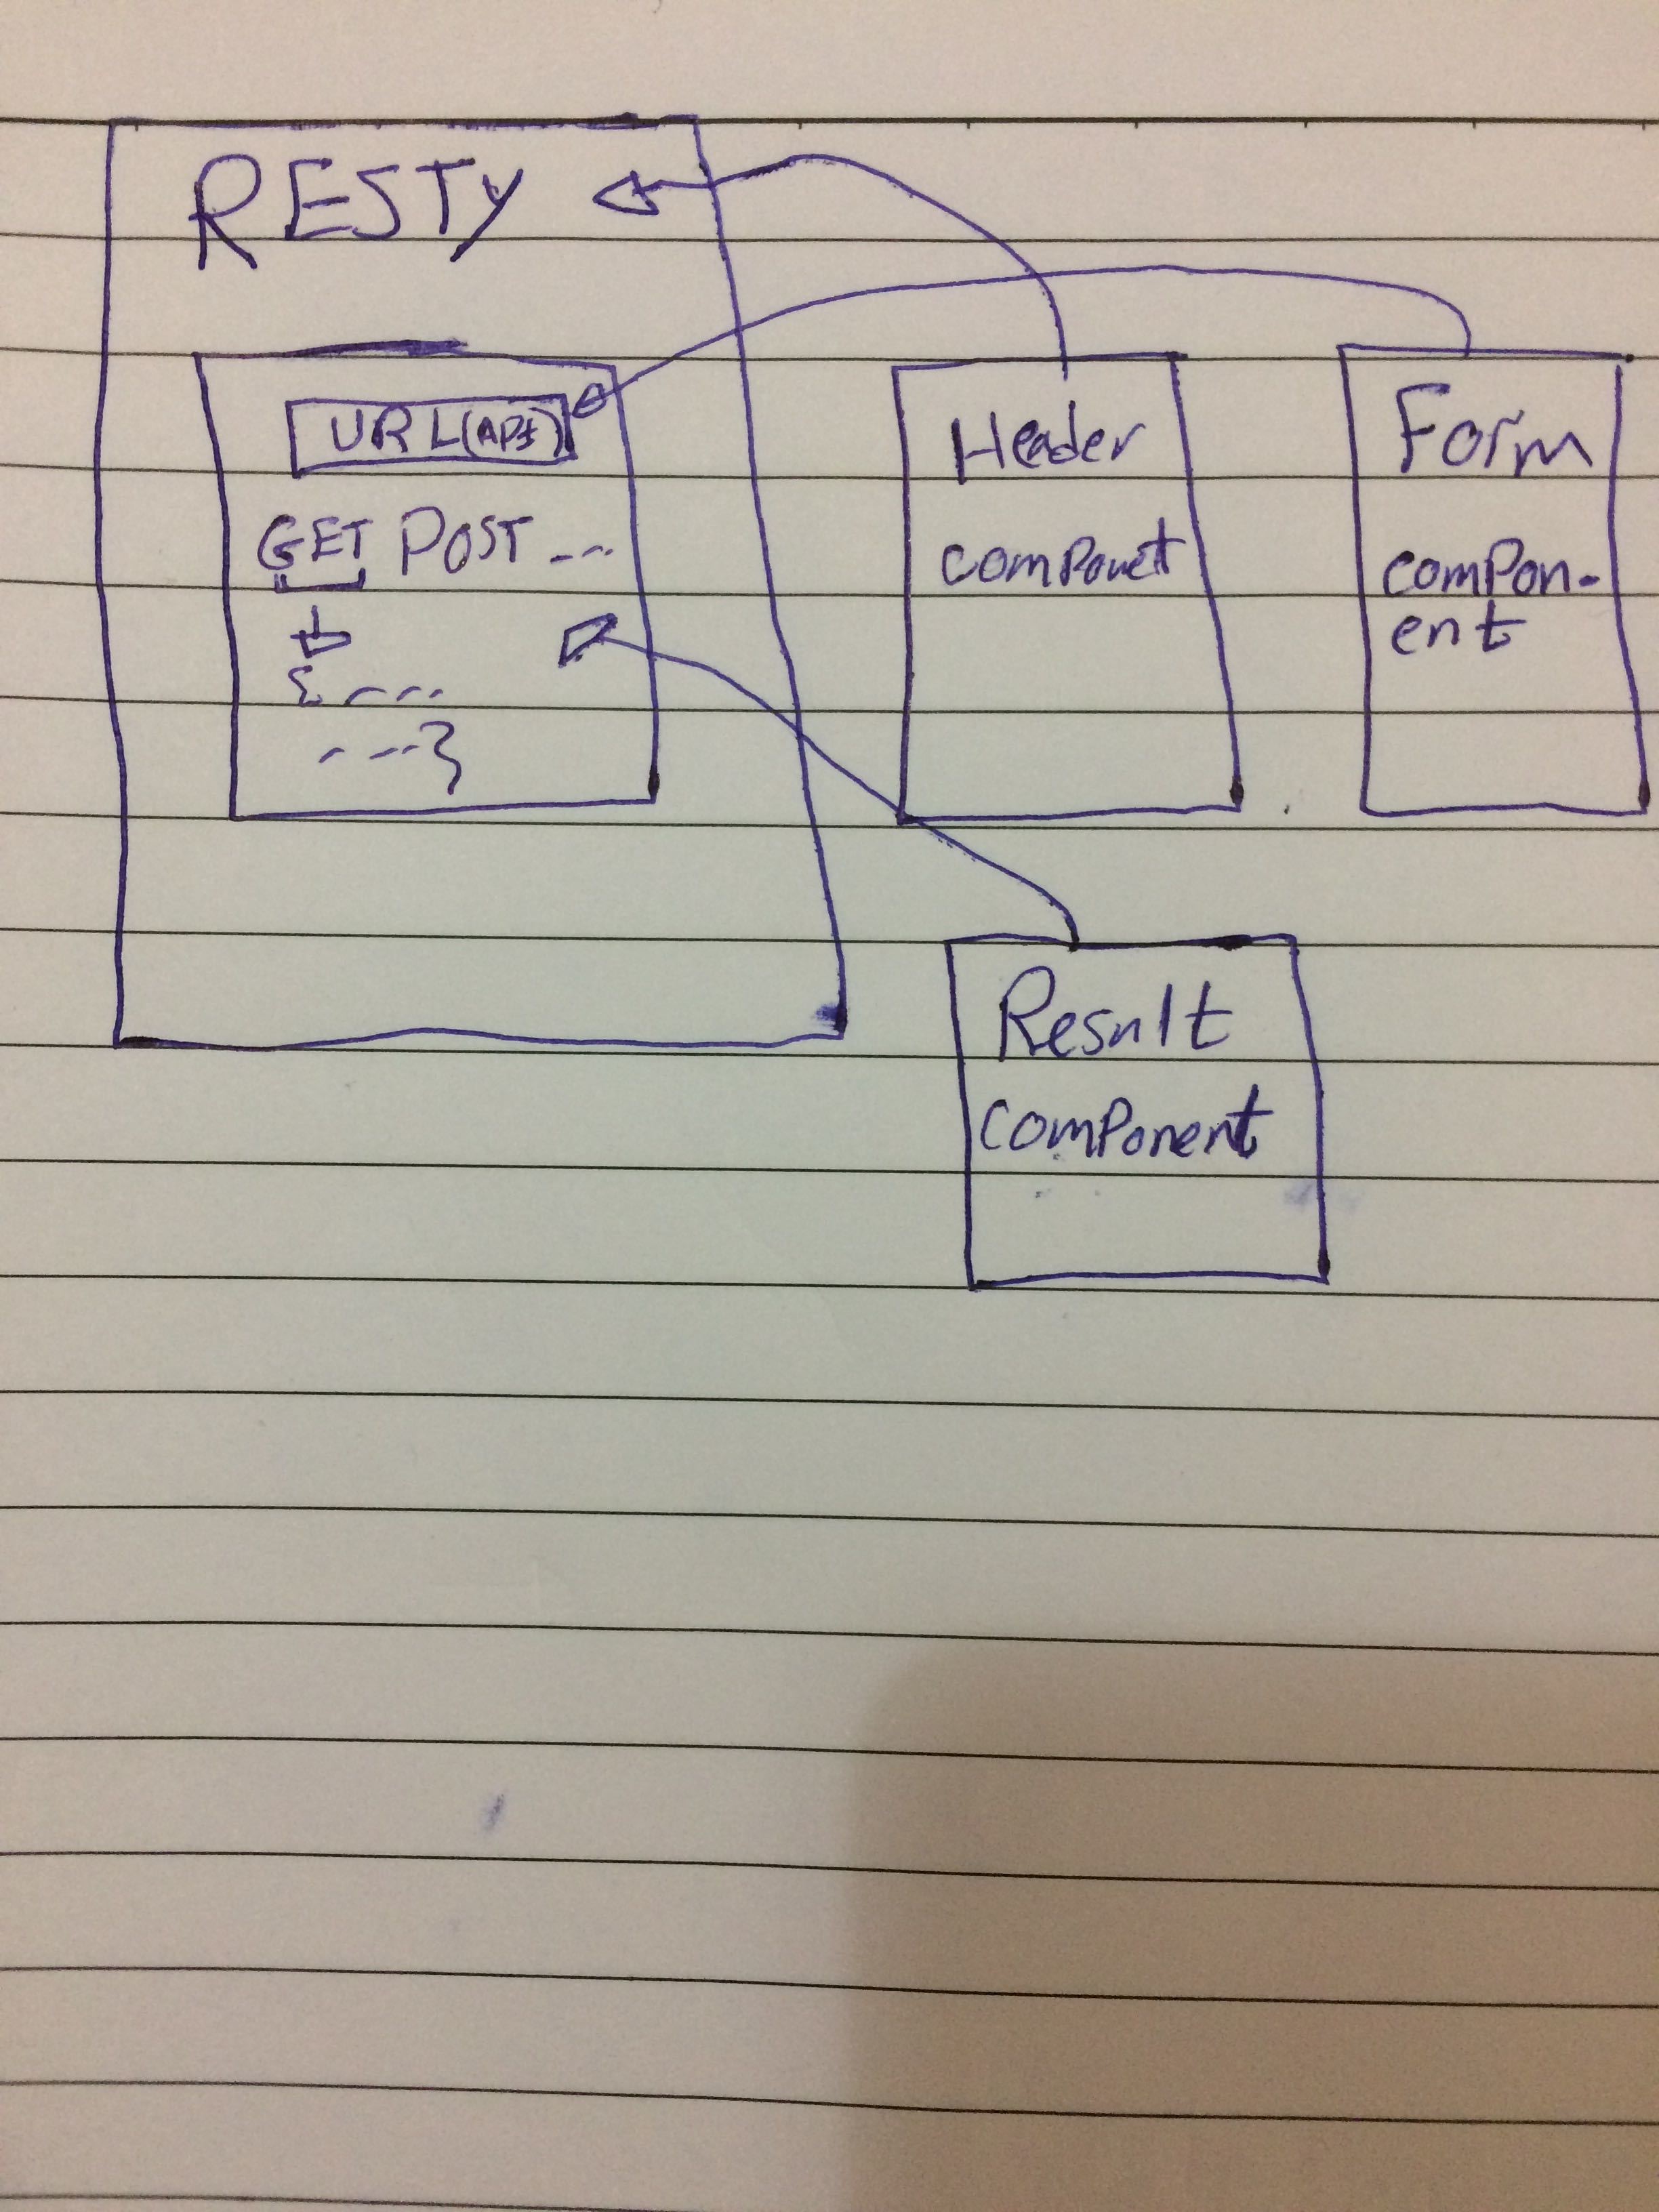 RESTy
URL(API)
GET POST ---
{ ----
----}
Header
componet
Form
compon-
ent
Result
component